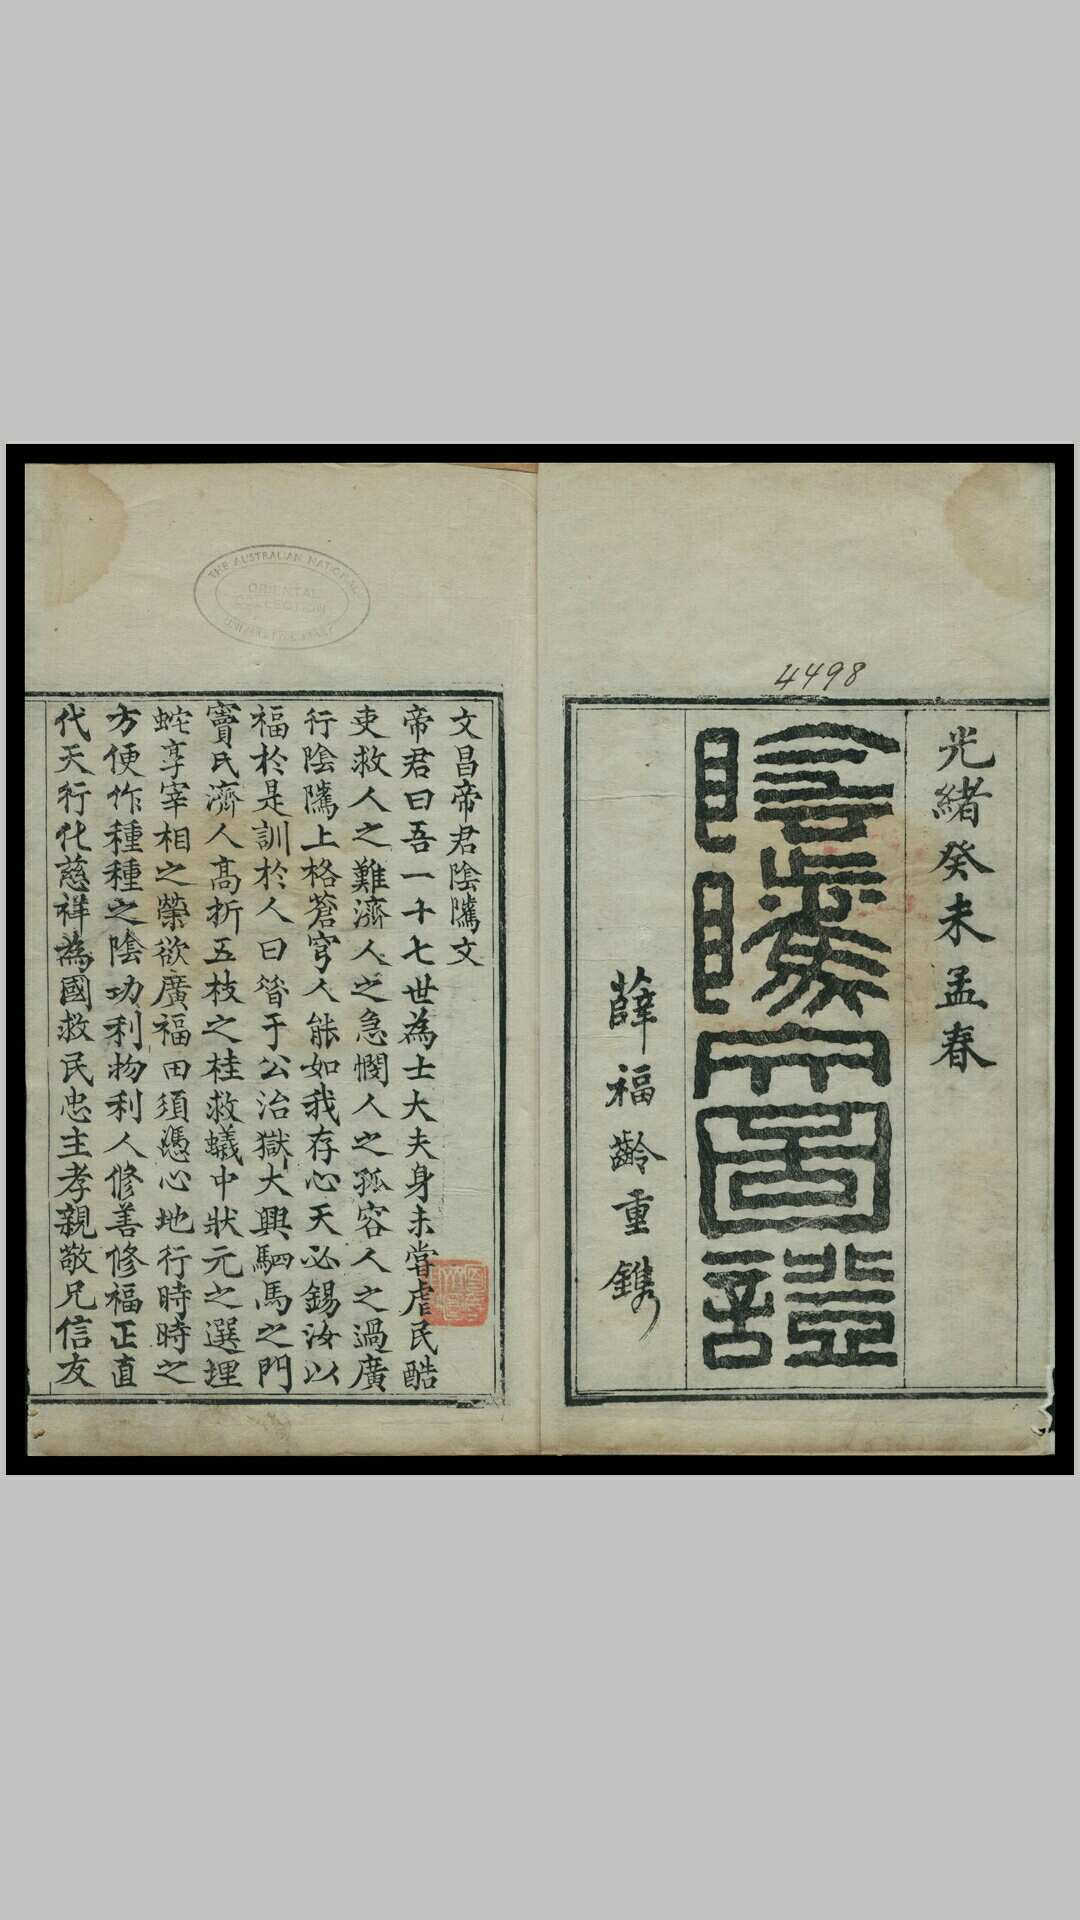 4498
光緒癸未孟春
陰騭文圖證
薛福齡重鐫
文昌帝君陰騭文
帝君曰吾一十七世為士大夫身未嘗虐民酷
吏救人之難濟人之急憫人之孤容人之過廣
行陰騭上格蒼穹人能如我存心天必錫汝以
福於是訓於人曰昝于公治獄大興駟馬之門
竇氏濟人高折五枝之桂救蟻中狀元之選埋
蛇享宰相之榮欲廣福田須憑心地行時時之
方便作種種之陰功利物利人修善修福正直
代天行化慈祥為國救民忠主孝親敬兄信友
THE AUSTRALIAN NATIONAL
ORIENTAL
COLLECTION
UNIVERSITY LIBRARY